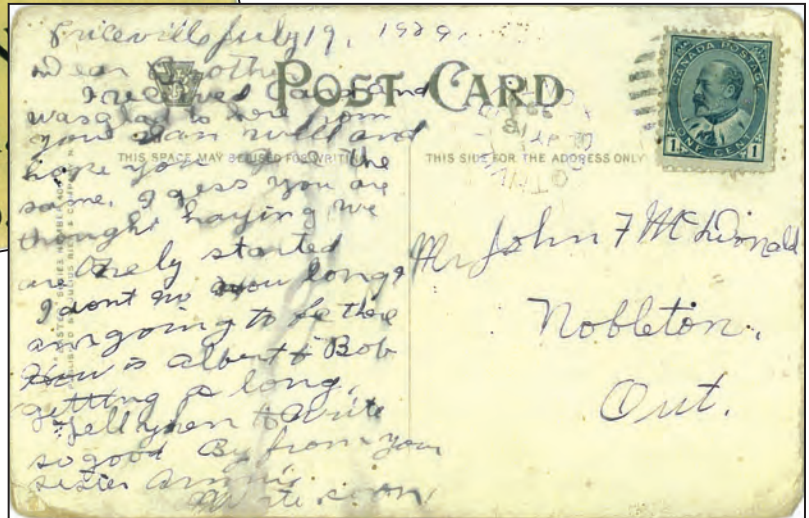 Priceville July 19, 1909.
Dear Brother
I received Card and
was glad to here from
you I an well and
hope you are the
same. I gess you are
throught haying we
are onely started
I dont no how long I
am going to be there
How is albert & Bob
getting a long,
Tell them to write
so good By from your
sister Annie
Write soon,
POST CARD
THIS SPACE MAY BE USED FOR WRITING
THIS SIDE FOR THE ADDRESS ONLY
CANADA POSTAGE
1 ONE CENT 1
Mr John F McDonald
Nobleton.
Ont.